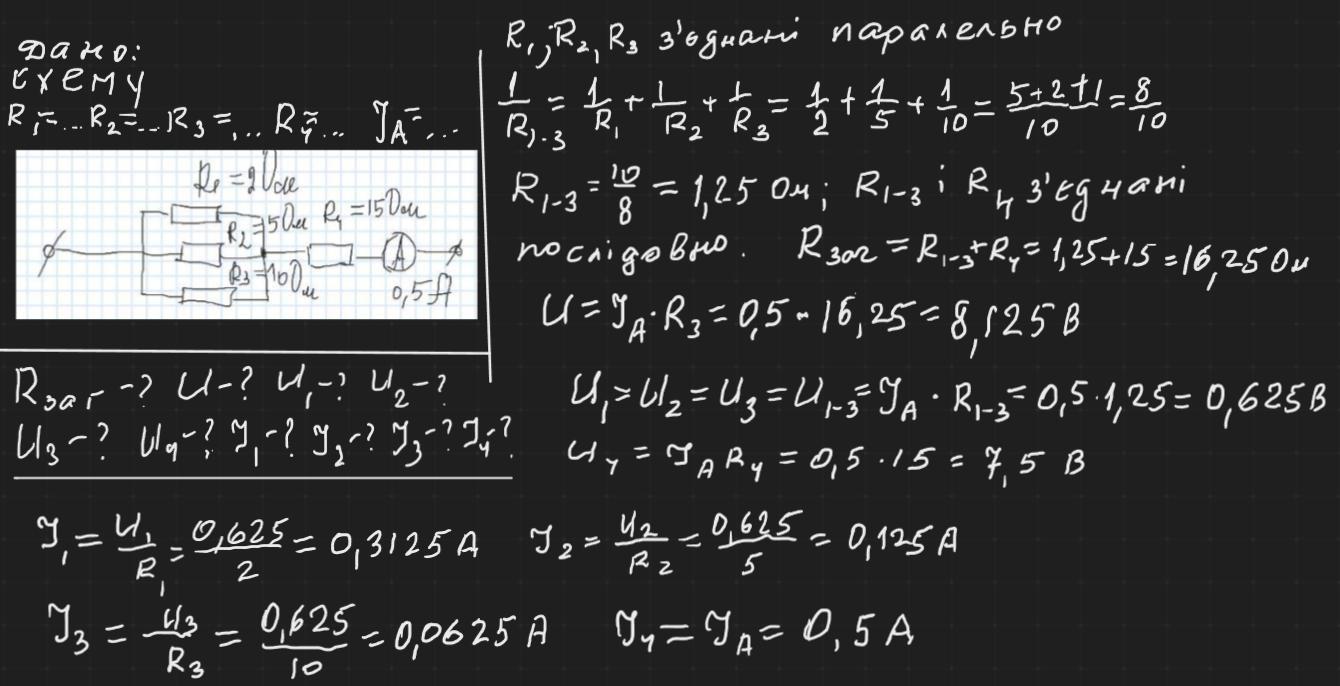 Дано:
схему
R₁=... R₂=... R₃=... R₄=... I_A=...
R₁=2 Ом
R₂=5 Ом R₄=15 Ом
R₃=10 Ом
A
0,5 А
Rзаг-? U-? U₁-? U₂-?
U₃-? U₄-? I₁-? I₂-? I₃-? I₄-?
R₁, R₂, R₃ з'єднані паралельно
1/R₁₋₃ = 1/R₁ + 1/R₂ + 1/R₃ = 1/2 + 1/5 + 1/10 = (5+2+1)/10 = 8/10
R₁₋₃ = 10/8 = 1,25 Ом; R₁₋₃ і R₄ з'єднані
послідовно. Rзаг = R₁₋₃ + R₄ = 1,25 + 15 = 16,25 Ом
U = I_A · R₃ = 0,5 · 16,25 = 8,125 В
U₁ = U₂ = U₃ = U₁₋₃ = I_A · R₁₋₃ = 0,5 · 1,25 = 0,625 В
U₄ = I_A R₄ = 0,5 · 15 = 7,5 В
I₁ = U₁/R₁ = 0,625/2 = 0,3125 А I₂ = U₂/R₂ = 0,625/5 = 0,125 А
I₃ = U₃/R₃ = 0,625/10 = 0,0625 А I₄ = I_A = 0,5 А